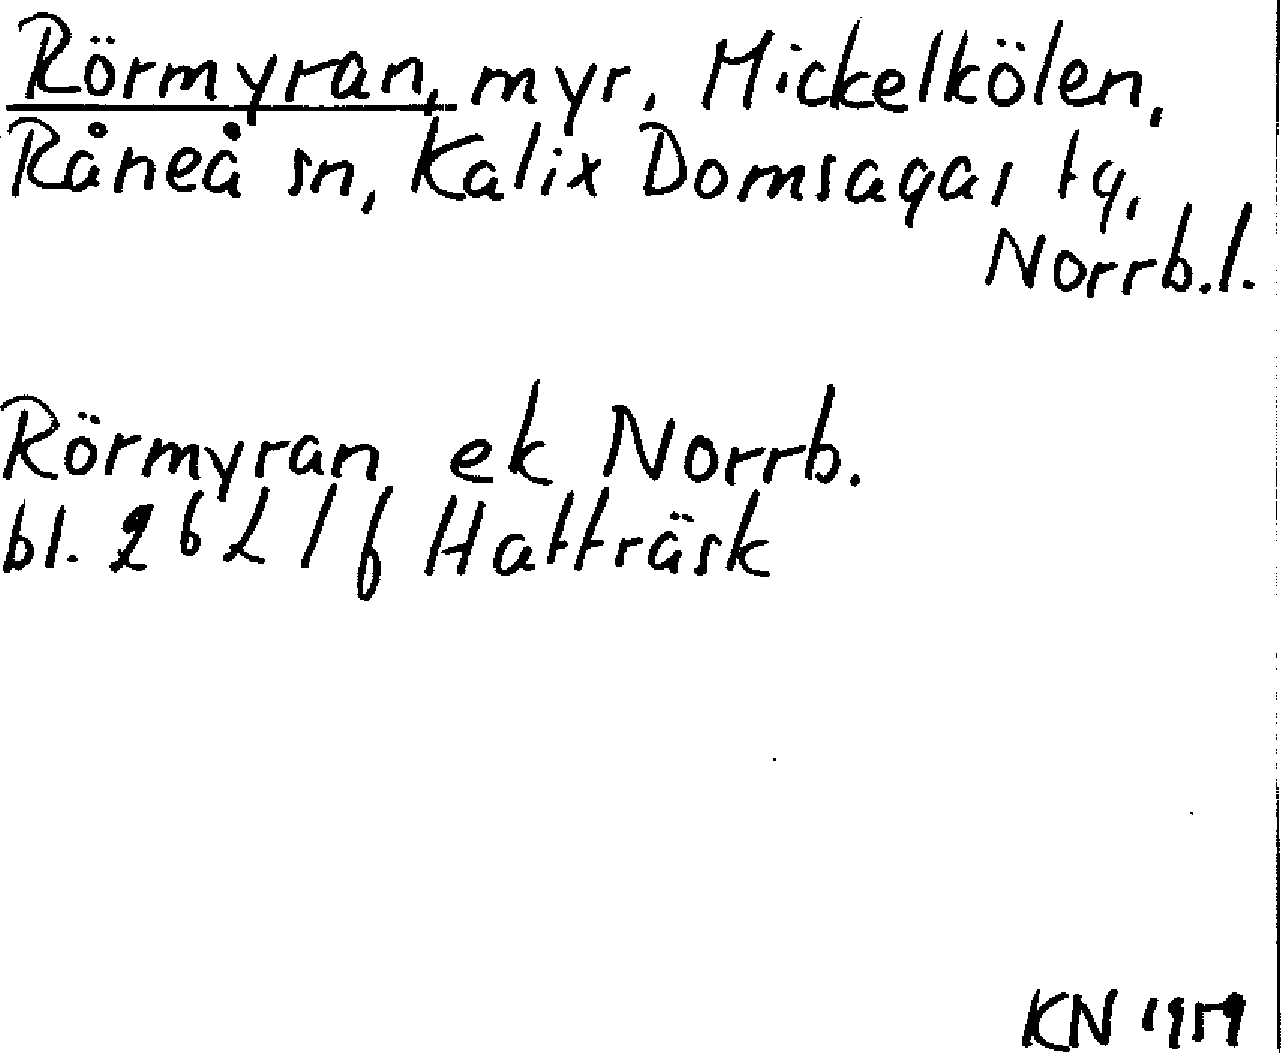 Rörmyran, myr, Mickelkölen,
Råneå sn, Kalix Domsagas tg,
Norrb.l.
Rörmyran ek Norrb.
bl. 26 L 1 f Hatträsk
KN 1959